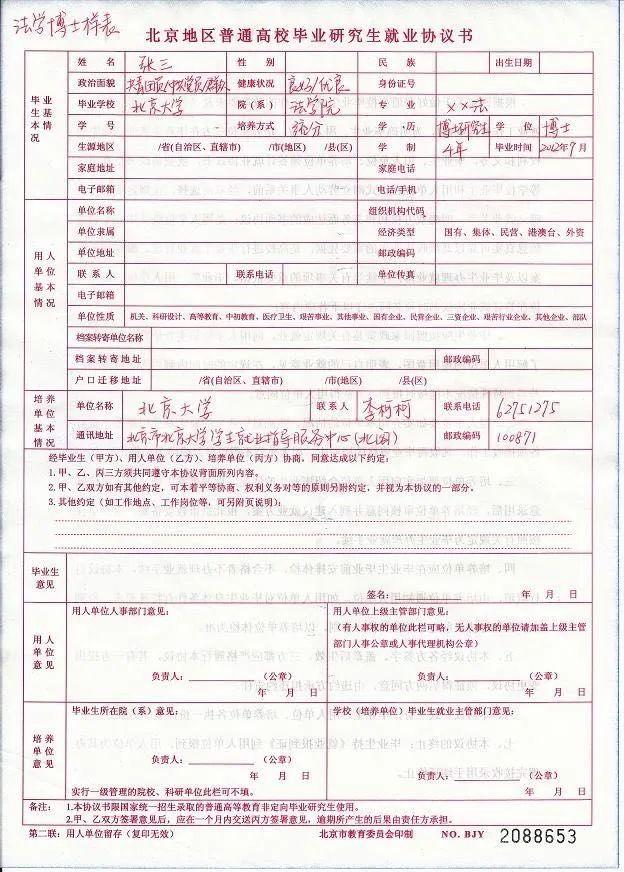 法学博士样表
北京地区普通高校毕业研究生就业协议书
毕业生基本情况
姓名 张三 性别 民族 出生日期
政治面貌 共青团员/中共党员/群众 健康状况 良好/优良 身份证号
毕业学校 北京大学 院(系) 法学院 专业 ××法
学号 培养方式 统分 学历 博士研究生 学位 博士
生源地区 /省(自治区、直辖市) /市(地区) /县(区) 学制 4年 毕业时间 2012年9月
家庭地址 家庭电话
电子邮箱 电话/手机
用人单位基本情况
单位名称 组织机构代码
单位隶属 经济类型 国有、集体、民营、港澳台、外资
单位地址 邮政编码
联系人 联系电话 单位传真
电子邮箱
单位性质 机关、科研设计、高等教育、中初教育、医疗卫生、艰苦事业、其他事业、国有企业、民营企业、三资企业、艰苦行业企业、其他企业、部队
档案转寄单位名称
档案转寄地址 邮政编码
户口迁移地址 /省(自治区、直辖市) /市(地区) /县(区)
培养单位基本情况
单位名称 北京大学 联系人 李柯柯 联系电话 62751275
通讯地址 北京市北京大学学生就业指导服务中心(北阁) 邮政编码 100871
经毕业生(甲方)、用人单位(乙方)、培养单位(丙方)协商,同意达成以下约定:
1.甲、乙、丙三方须共同遵守本协议背面所列内容。
2.甲、乙双方如有其他约定,可本着平等协商、权利义务对等的原则另附约定,并视为本协议的一部分。
3.其他约定(如工作地点、工作岗位等,可另附页说明):
毕业生意见
签名:
年 月 日
用人单位意见
用人单位人事部门意见:
负责人: (公章)
年 月 日
用人单位上级主管部门意见:
(有人事权的单位此栏可略,无人事权的单位请加盖上级主管部门人事公章或人事代理机构公章)
负责人: (公章)
年 月 日
培养单位意见
毕业生所在院(系)意见:
负责人: (公章)
年 月 日
实行一级管理的院校、科研单位此栏可不填。
学校(培养单位)毕业生就业主管部门意见:
负责人: (公章)
年 月 日
备注: 1.本协议书限国家统一招生录取的普通高等教育非定向毕业研究生使用。
2.甲、乙双方签署意见后,应在一个月内交送丙方签署意见,逾期所产生的后果由责任方承担。
第二联:用人单位留存(复印无效) 北京市教育委员会印制 NO. BJY 2088653